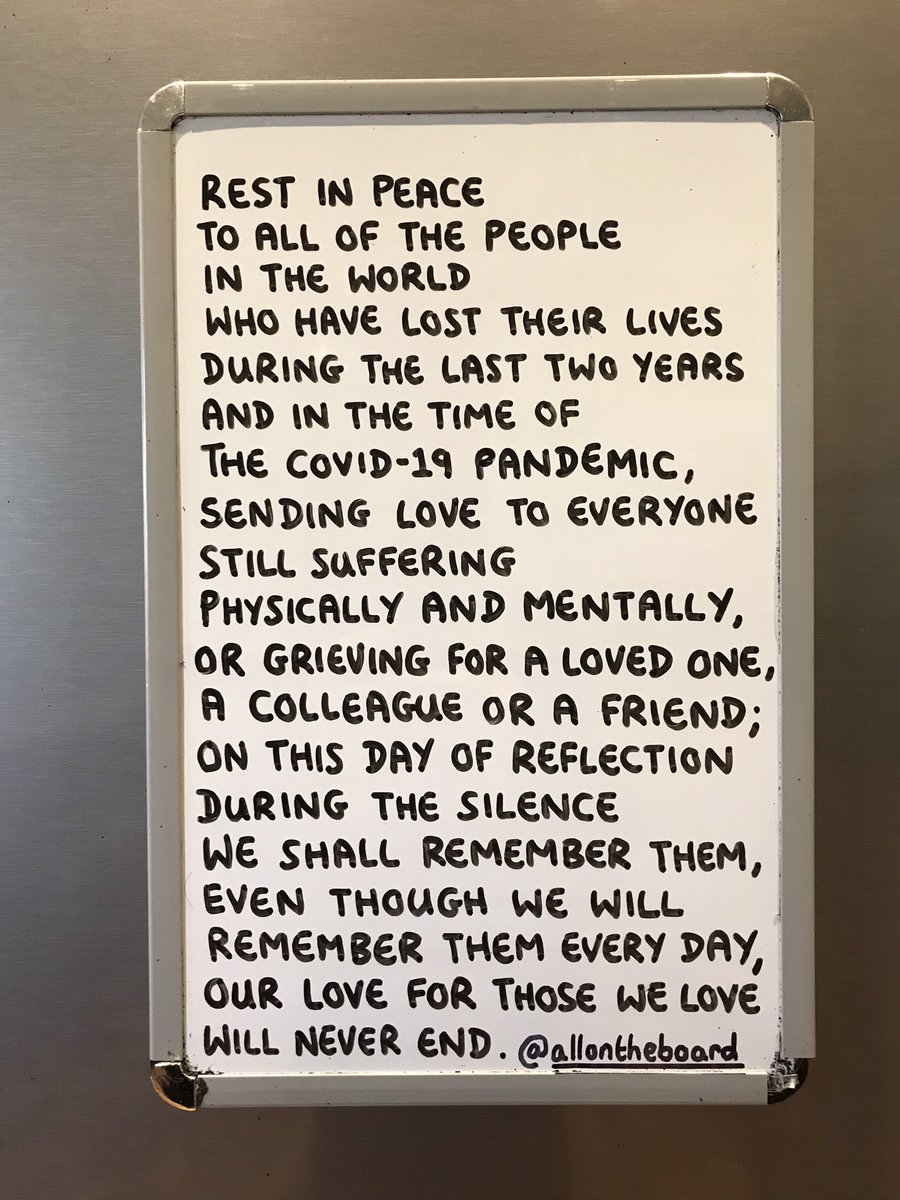 REST IN PEACE
TO ALL OF THE PEOPLE
IN THE WORLD
WHO HAVE LOST THEIR LIVES
DURING THE LAST TWO YEARS
AND IN THE TIME OF
THE COVID-19 PANDEMIC,
SENDING LOVE TO EVERYONE
STILL SUFFERING
PHYSICALLY AND MENTALLY,
OR GRIEVING FOR A LOVED ONE,
A COLLEAGUE OR A FRIEND;
ON THIS DAY OF REFLECTION
DURING THE SILENCE
WE SHALL REMEMBER THEM,
EVEN THOUGH WE WILL
REMEMBER THEM EVERY DAY,
OUR LOVE FOR THOSE WE LOVE
WILL NEVER END. @allontheboard